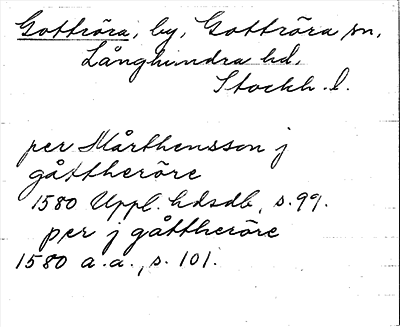 Gottröra, by, Gottröra sn,
Långhundra hd,
Stockh. l.
per Mårthensson j
gåttheröre
1580 Uppl. hdsdb, s. 99.
per j gåttheröre
1580 a.a., s. 101.